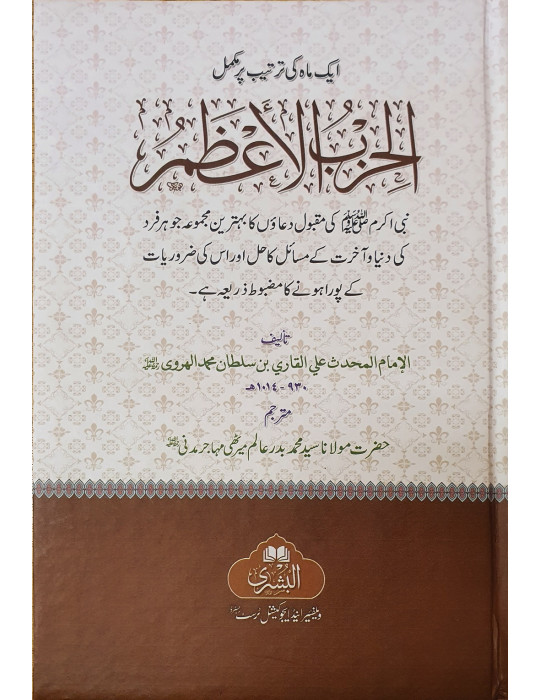 ایک ماہ کی ترتیب پر مکمل
الحزب الأعظم
نبی اکرم ﷺ کی مقبول دعاؤں کا بہترین مجموعہ جو ہر فرد
کی دنیا و آخرت کے مسائل کا حل اور اس کی ضروریات
کے پورا ہونے کا مضبوط ذریعہ ہے۔
تألیف
الإمام المحدث علي القاري بن سلطان محمد الهروي
۹۳۰ - ۱۰۱۴ھ
مترجم
حضرت مولانا سید محمد بدر عالم میرٹھی مہاجر مدنی
البشری
ویلفیئر اینڈ ایجوکیشنل ٹرسٹ